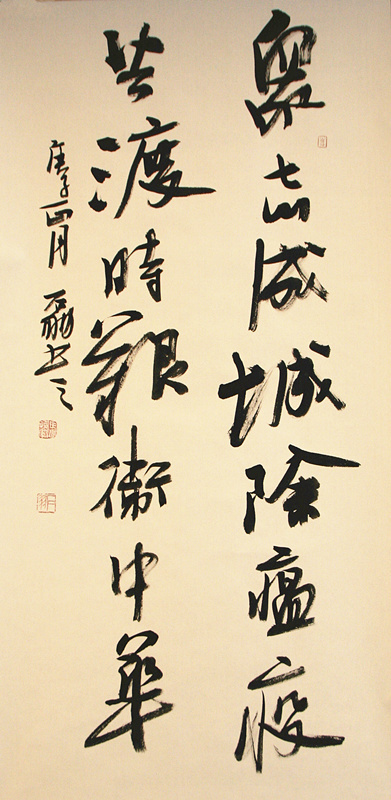 眾志成城除瘟疫
共渡時艱衛中華
庚子正月 磊书之